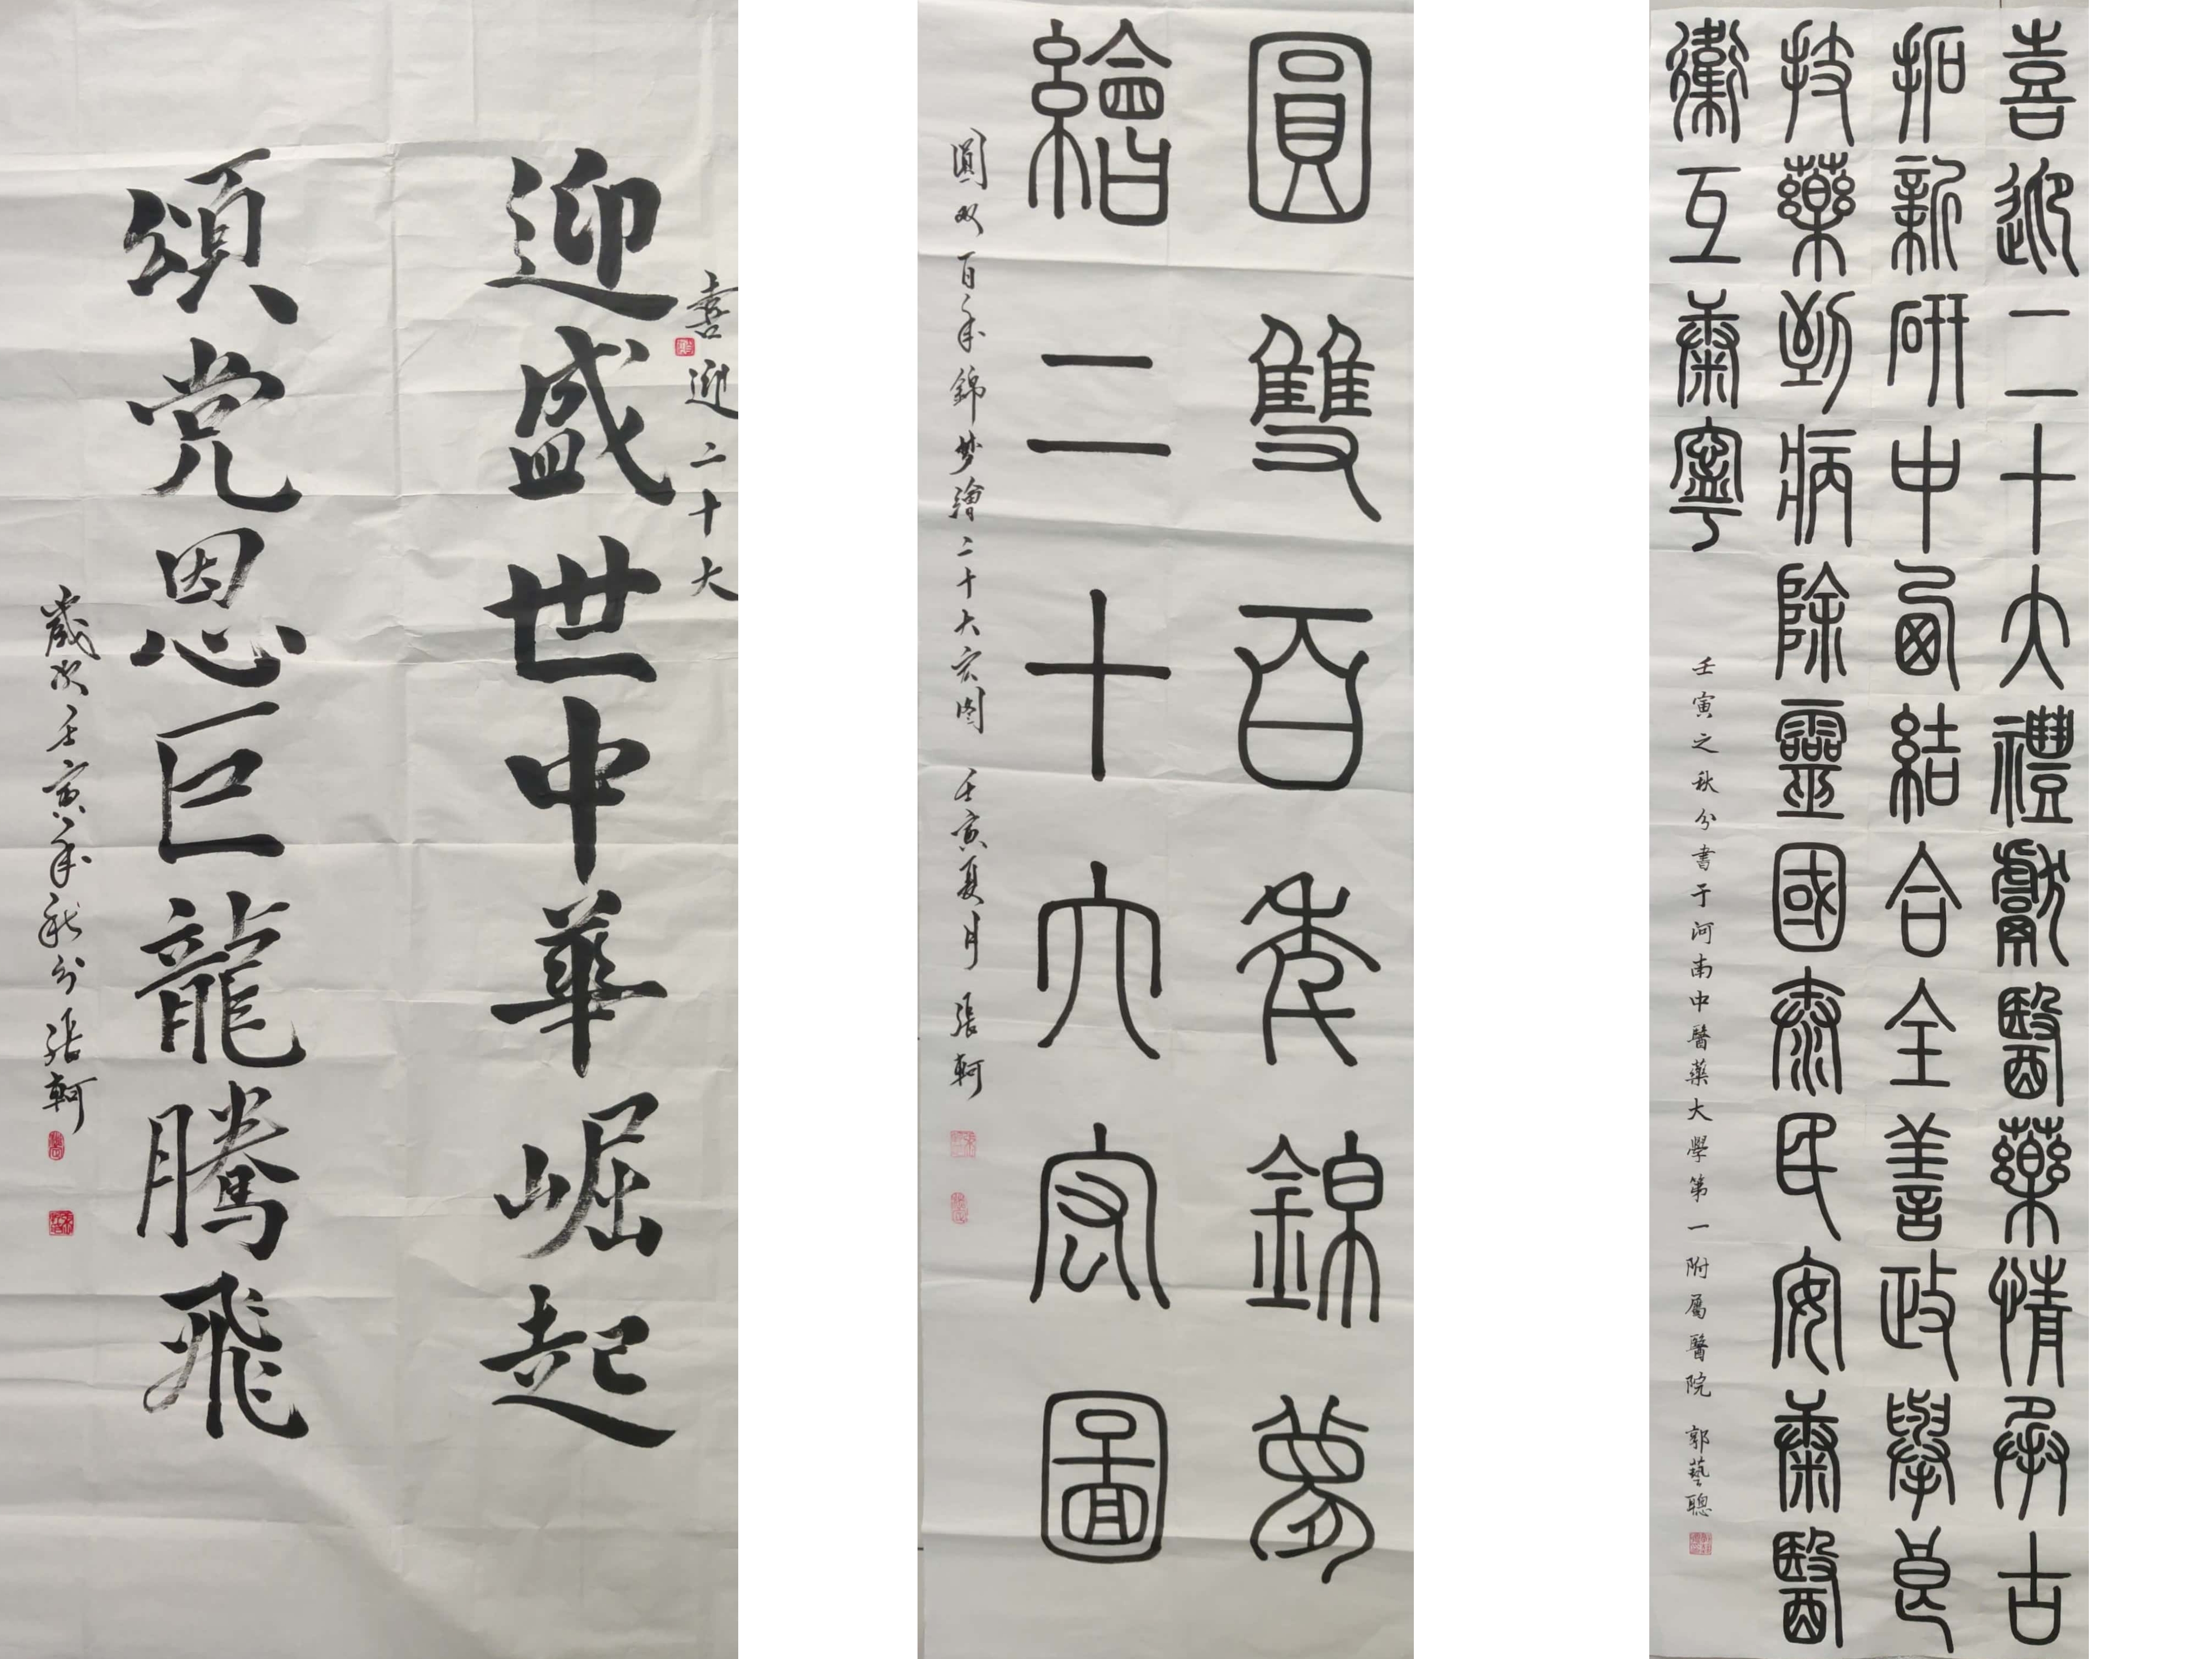 喜迎二十大
迎盛世中華崛起
頌党恩巨龍騰飛
歲次壬寅年秋分 張軻
圓雙百年錦夢
繪二十大宏圖
圓双百年錦梦繪二十大宏图 壬寅夏月 張軻
喜迎二十大禮獻醫藥情承古
拓新研中西結合全善政舉良
技藥到病除靈國泰民安康醫
衛互康寧
壬寅之秋分書于河南中醫藥大學第一附屬醫院 郭藝聰